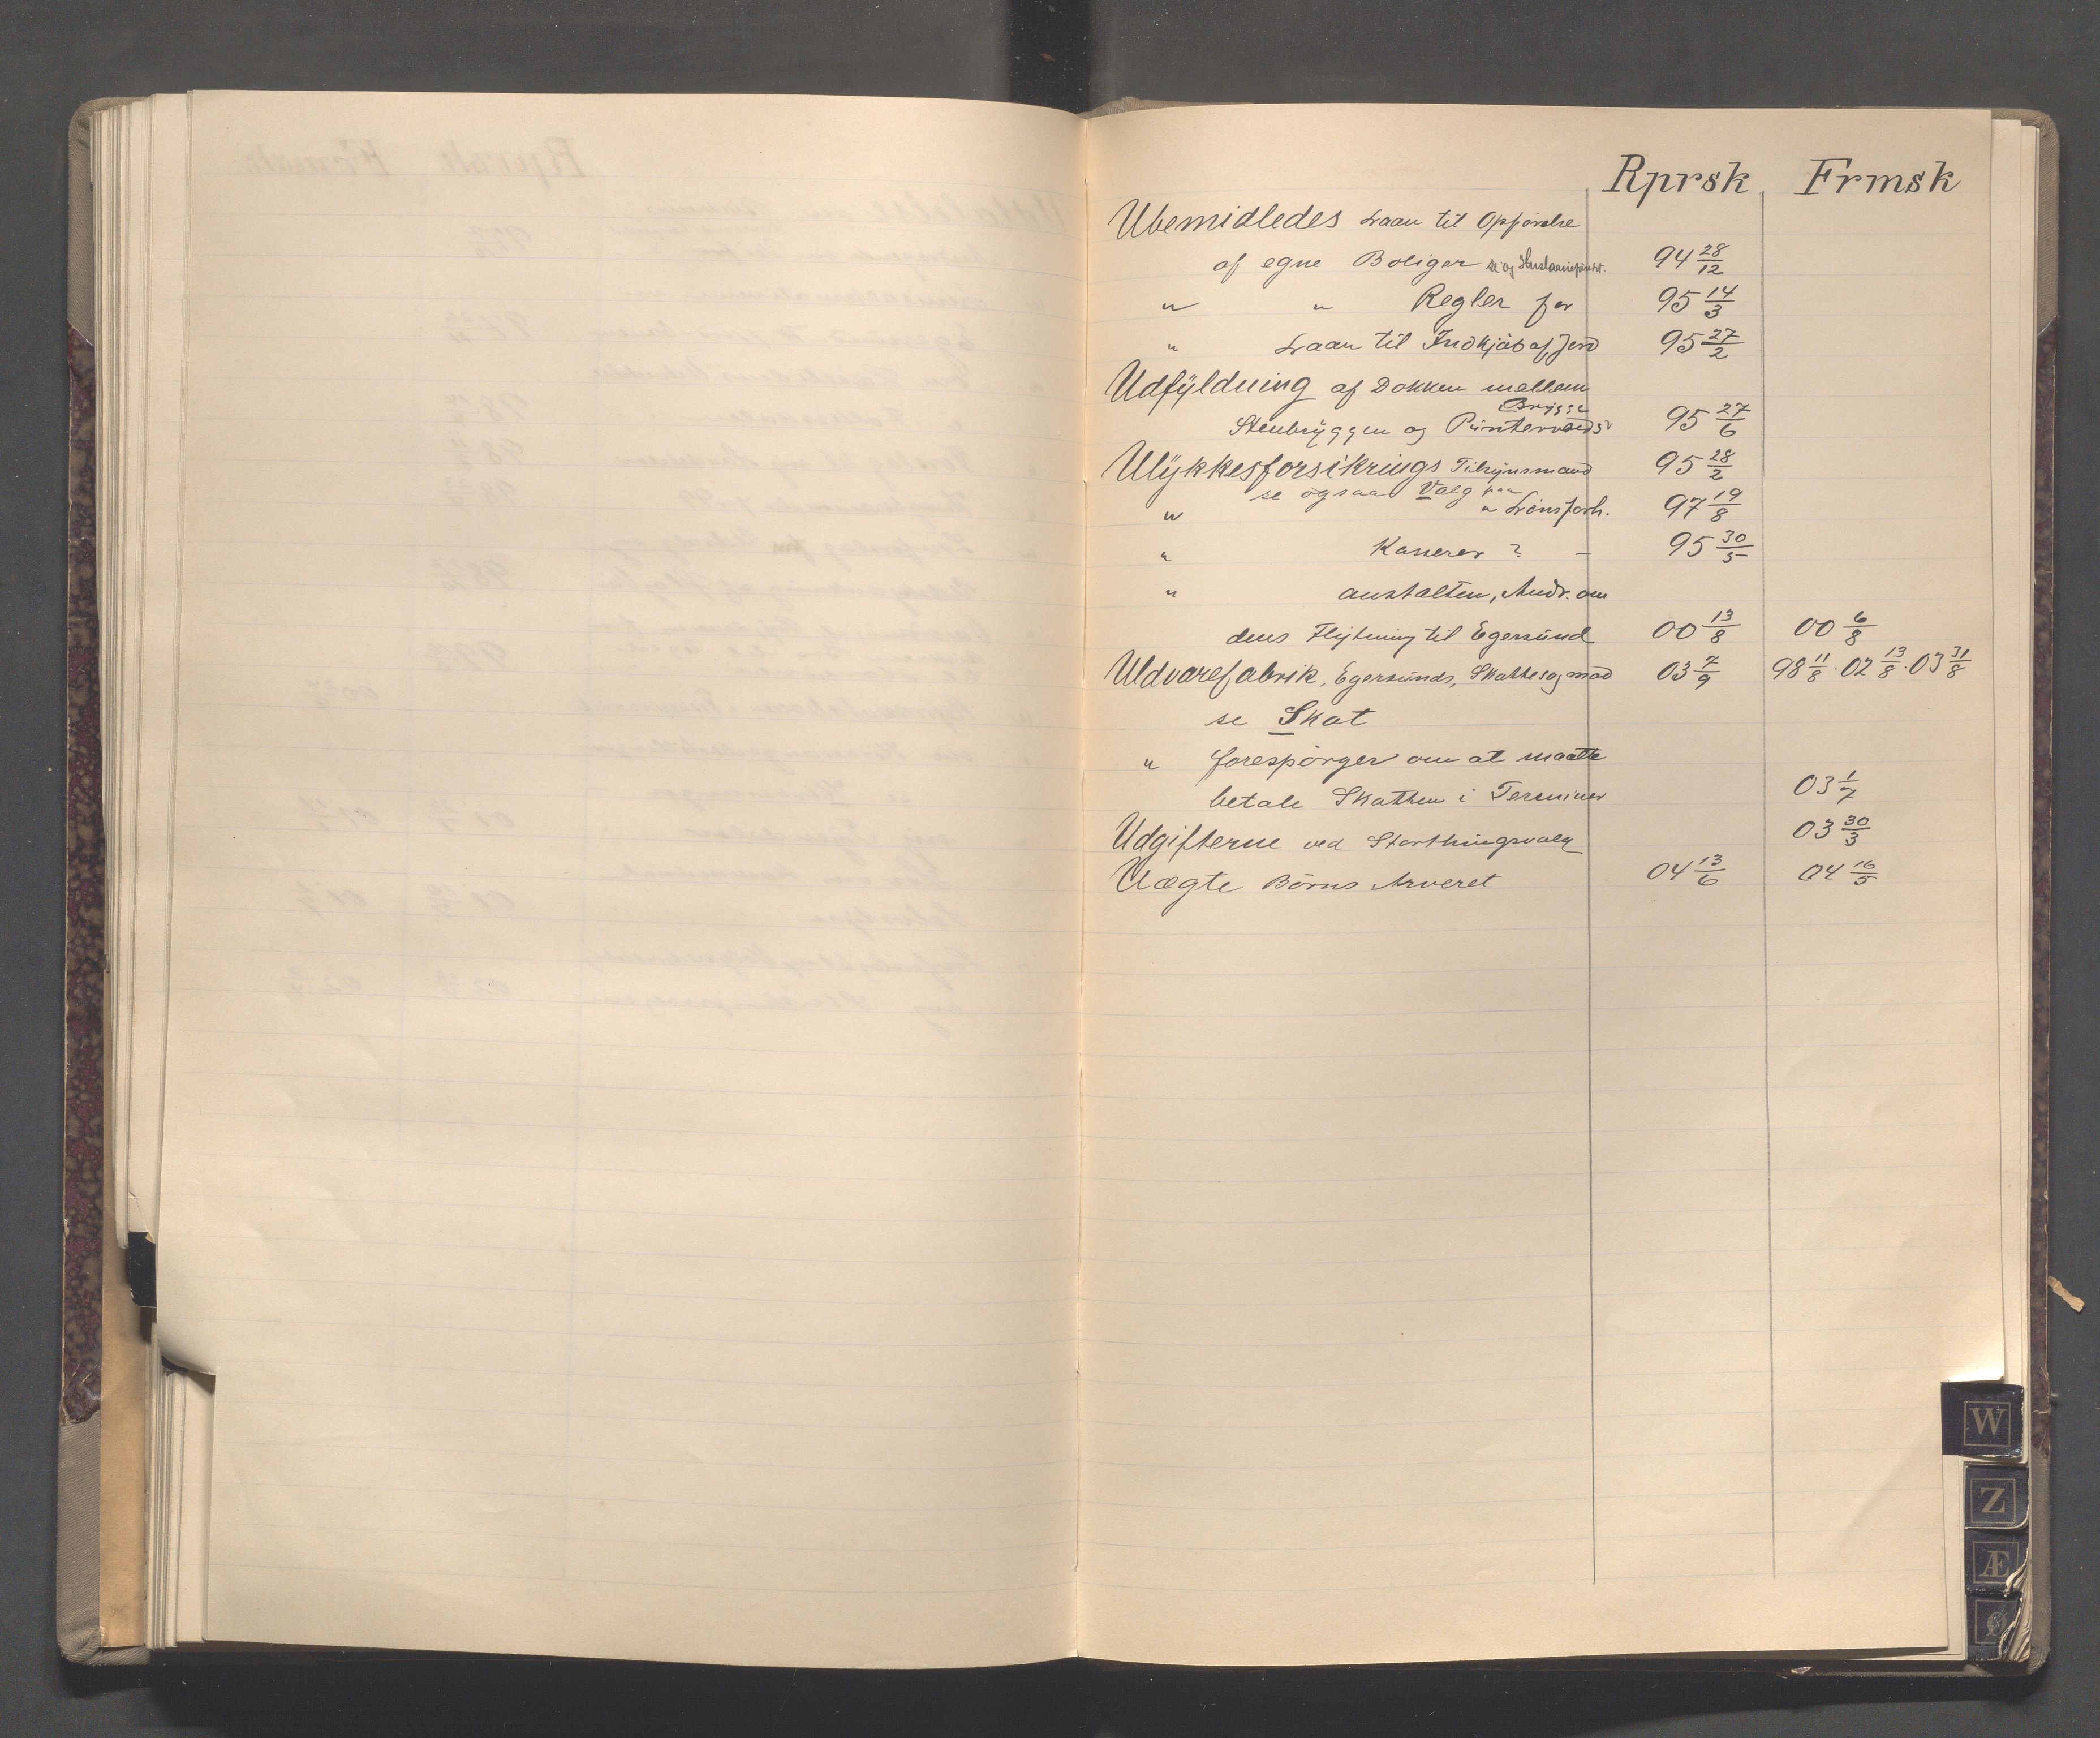 Rprsk Frmsk
Ubemidledes Laan til Opførelse
af egne Boliger se og Huslaanefondet. 94 28/12
" " Regler for 95 14/3
" Laan til Indkjøb af Jord 95 27/2
Udfyldning af Dokken mellem
Brygge
Stenbryggen og 95 27/6
Ulykkesforsikrings Tilsynsmand 95 28/2
se ogsaa Valg
" " Lønsforh. 97 19/8
" Kasserer ? - 95 30/5
" anstalten, Andr. om
dens Flytning til Egersund 00 13/8 00 6/8
Uldvarefabrik, Egersunds, Skattesøgsmaal 03 7/9 98 11/8 . 02 13/8 . 03 31/8
se Skat
" forespørger om at maatte
betale Skatten i Terminer 03 1/7
Udgifterne ved Storthingsvalg 03 30/3
Uægte Børns Arveret 04 13/6 04 16/5
W
Z
Æ
Ø